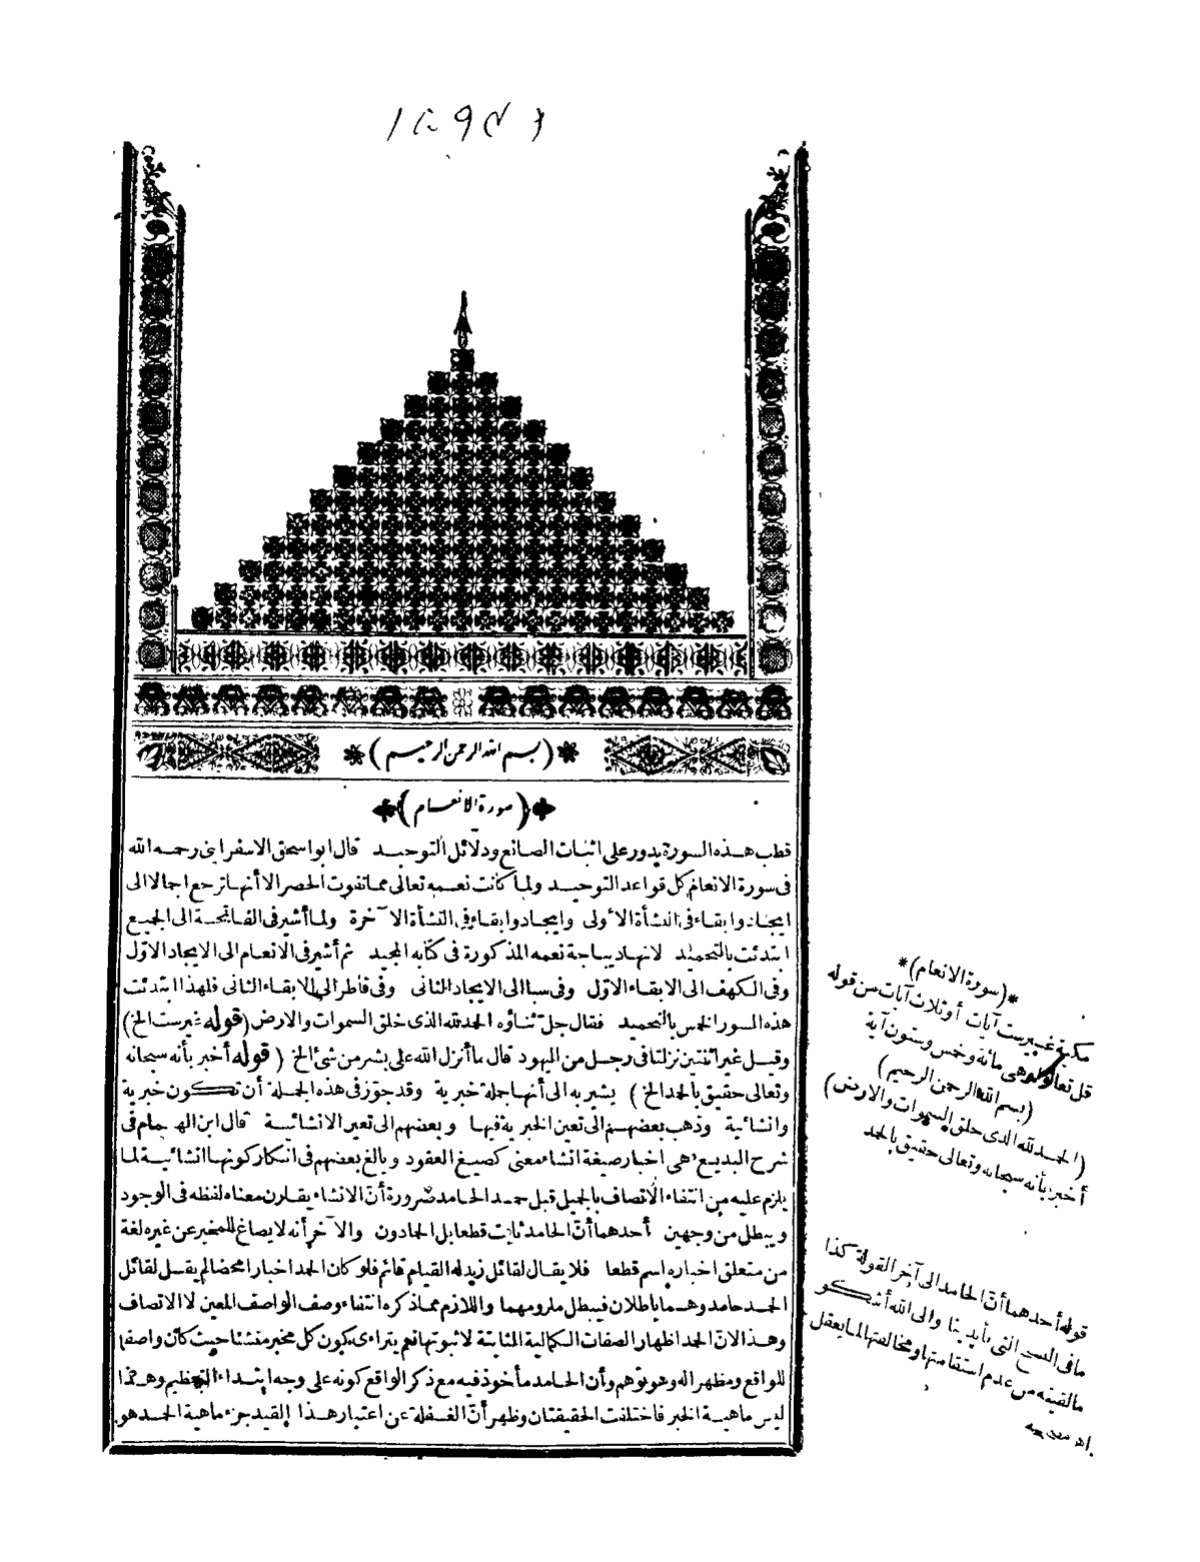 (بسم الله الرحمن الرحيم)
(سورة الانعام)
قطب هذه السورة يدور على اثبات الصانع ودلائل التوحيد قال ابو اسحق الاسفرايني رحمه الله
فى سورة الانعام كل قواعد التوحيد ولما كانت نعمه تعالى مما تفوت الحصر الا أنها ترجع اجمالا الى
ايجاد وابقاء فى النشأة الأولى وايجاد وابقاء فى النشأة الآخرة ولما أشير فى الفاتحة الى الجميع
ابتدئت بالتحميد لانها ديباجة نعمه المذكورة فى كتابه المجيد ثم أشير فى الانعام الى الايجاد الاول
وفى الكهف الى الابقاء الاول وفى سبا الى الايجاد الثانى وفى فاطر الى الابقاء الثانى فلهذا ابتدئت
هذه السور الخمس بالتحميد فقال جل ثناؤه الحمد لله الذى خلق السموات والارض (قوله غيرست الخ)
وقيل غير اثنتين نزلتا فى رجل من اليهود قال ما أنزل الله على بشر من شئ الخ (قوله أخبر بأنه سبحانه
وتعالى حقيق بالحمد الخ) يشير به الى أنها جملة خبرية وقد جوز فى هذه الجملة أن تكون خبرية
وانشائية وذهب بعضهم الى تعين الخبرية فيها وبعضهم الى تعين الانشائية قال ابن الهمام فى
شرح البديع هى اخبار صيغة انشاء معنى كصيغ العقود وبالغ بعضهم فى انكار كونها انشائية لما
يلزم عليه من انتفاء الاتصاف بالجميل قبل حمد الحامد ضرورة أن الانشاء يقارن معناه لفظه فى الوجود
ويبطل من وجهين أحدهما أن الحامد ثابت قطعا بل الحمادون والآخر أنه لا يصاغ للمخبر عن غيره لغة
من متعلق اخباره اسم قطعا فلا يقال لقائل زيد له القيام قائم فلو كان الحمد اخبارا محضا لم يقل لقائل
الحمد حامد وهما باطلان فيبطل ملزومهما واللازم مما ذكره انتفاء وصف الواصف المعين لا الاتصاف
وهذا لان الحمد اظهار الصفات الكمالية الثابتة لا ثبوتها نعم يتراءى كون كل مخبر منشئا حيث كان واصفا
للواقع ومظهرا له وهو توهم وأن الحامد مأخوذ فيه مع ذكر الواقع كونه على وجه ابتداء التعظيم وهذا
ليس ماهية الخبر فاختلفت الحقيقتان وظهر أن الغفلة عن اعتبار هذا القيد جزء ماهية الحمد هو
*(سورة الانعام)*
مكية غيرست آيات أو ثلاث آيات من قوله
قل تعالوا وهى مائة وخمس وستون آية
(بسم الله الرحمن الرحيم)
(الحمد لله الذى خلق السموات والارض)
أخبر بأنه سبحانه وتعالى حقيق بالحمد
قوله أحدهما أن الحامد الى آخر القولة كذا
ما فى النسخ التى بأيدينا والى الله أشكو
ما لقيته من عدم استقامتها ومخالفتها لما يعقل
اه مصححه